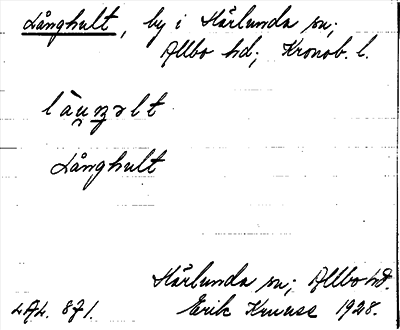 Långhult, by i Härlunda sn;
Allbo hd; Kronob. l.
Långhult
Härlunda sn; Allbo hd.
L.A.L. 871. Erik Kruuse 1928.